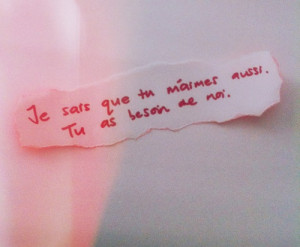 Je sais que tu m'aimes aussi.
Tu as besoin de moi.